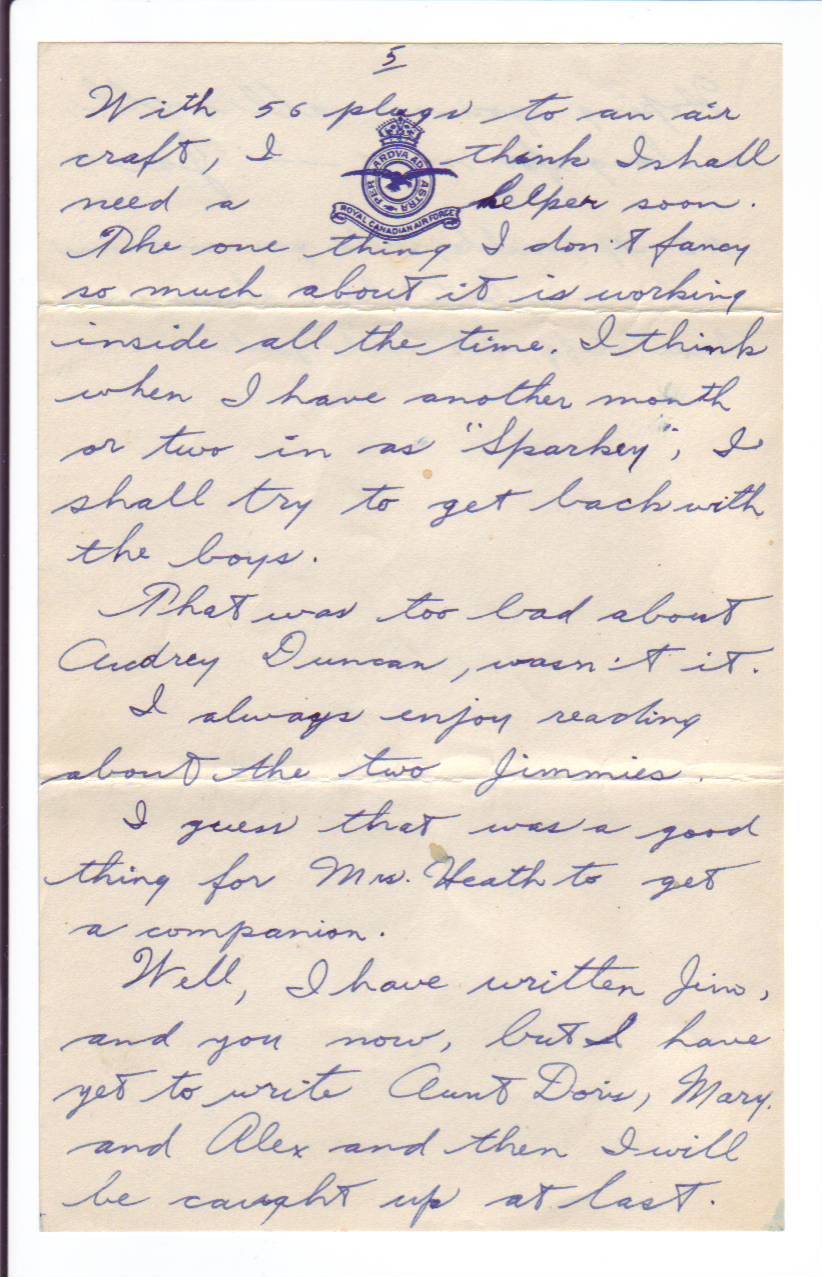 5
With 56 plugs to an air
craft, I think I shall
PER ARDVA AD ASTRA
ROYAL CANADIAN AIR FORCE
need a helper soon.
The one thing I don't fancy
so much about it is working
inside all the time. I think
when I have another month
or two in as "Sparkey", I
shall try to get back with
the boys.
That was too bad about
Audrey Duncan, wasn't it.
I always enjoy reading
about the two Jimmies.
I guess that was a good
thing for Mrs. Heath to get
a companion.
Well, I have written Jim,
and you now, but I have
yet to write Aunt Doris, Mary.
and Alex and then I will
be caught up at last.